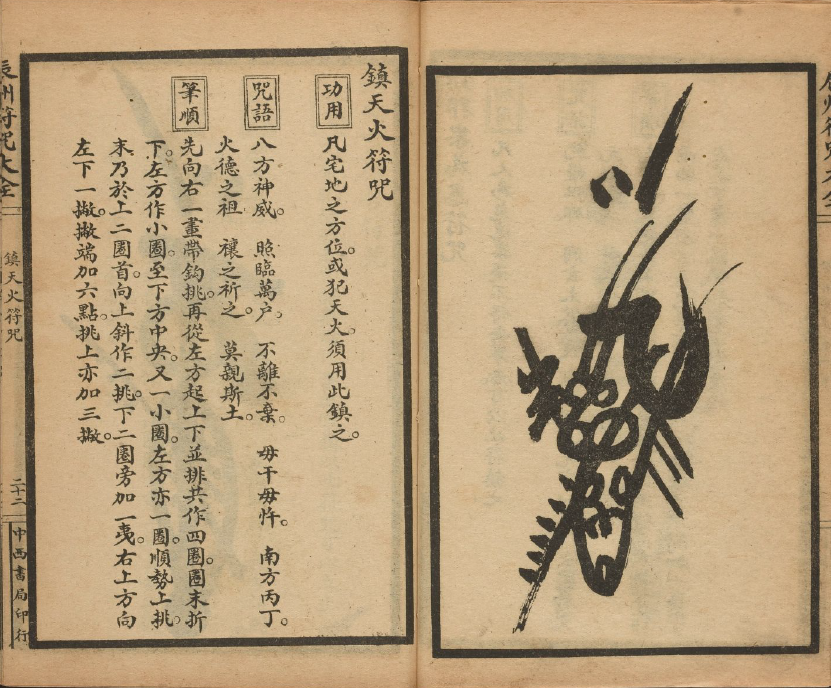 鎮天火符咒
功用
凡宅地之方位。或犯天火。須用此鎮之。
咒語
八方神威。 照臨萬户。 不離不棄。 毋干毋忤。 南方丙丁。
火德之祖 禳之祈之。 莫親斯土。
筆順
先向右一畫帶鈎挑。再從左方起上下並排共作四圈。圈末折
下。左方作小圈。至下方中央。又一小圈。左方亦一圈。順勢上挑。
末乃於上二圈首。向上斜作二挑。下二圈旁加一夷。右上方向
左下一撇。撇端加六點。挑上亦加三撇。
辰州符咒大全
鎮天火符咒
二十二
中西書局印行